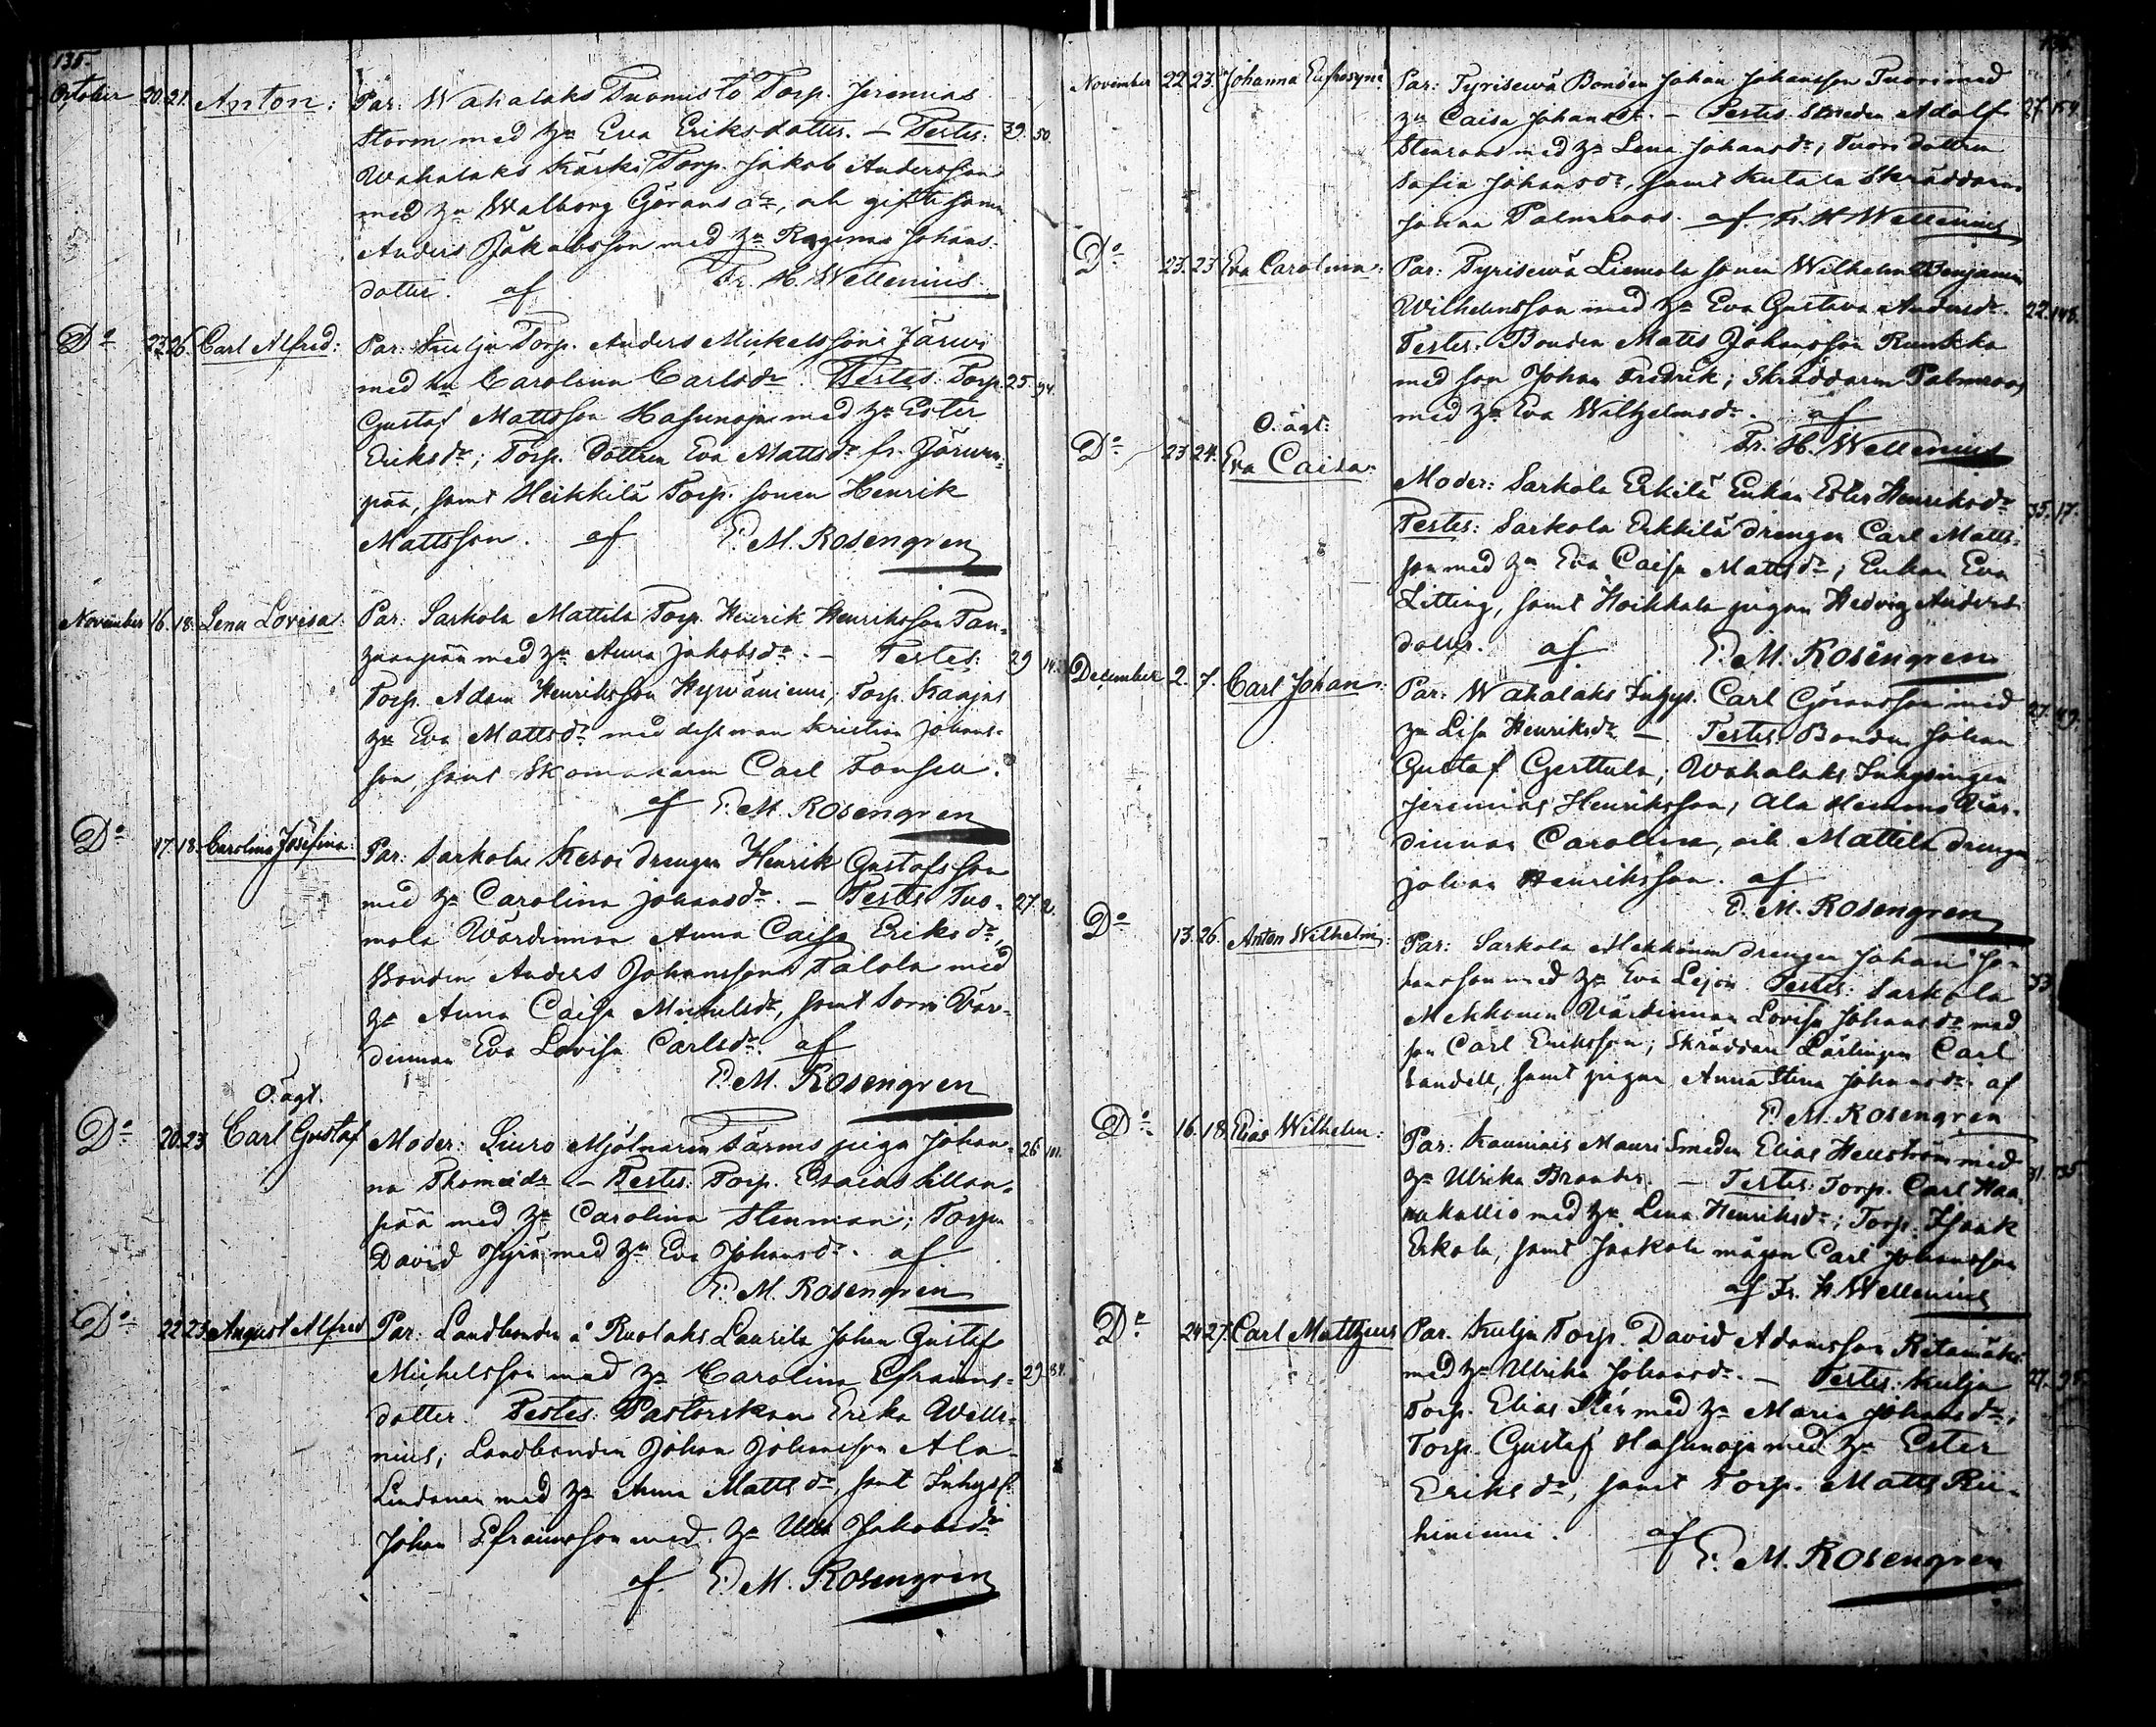 135.
October 20. 21. Anton: Par: Wahalaks Tuomisto Torp. Jeremias
Storm med hu Eva Eriksdotter. — Testes: 39. 50.
Wahalaks Kärki Torp. Jakob Andersson
med hu Walborg Görans dr, och gifte sonen
Anders Jakobsson med hu Regina Johans-
dotter. af Fr. H. Wellenius.
Do 23. 26. Carl Alfred: Par: Kulju Torp. Anders Mickelsson Järwi
med hu Carolina Carlsdr Testes: Torp. 25. 94.
Gustaf Mattsson Hasunoja med hu Ester
Eriksdr; Torp. dottren Eva Mattsdr fr. Järwen-
pää, samt Heikkilä Torp. sonen Henrik
Mattsson. af E. M. Rosengren
November 16. 18. Lena Lovisa. Par: Sarkola Mattila Torp. Henrik Henriksson Tan-
huanpää med hu Anna Jakobsdr. — Testes: 29 14.
Torp. Adam Henriksson Hywäniemi; Torp.
hu Eva Mattsdr med dess man Kristian Johans-
son, samt Skomakaren Carl
af E. M. Rosengren
Do 17. 18. Carolina Josefina: Par: Sarkola drengen Henrik Gustafsson
med hu Carolina Johansdr. — Testes Tuo- 27. 2.
mola Wärdinnan Anna Caisa Eriksdr,
Bonden Anders Johansson Talola med
hu Anna Caisa Michelsdr, samt Sorri Vär-
dinnan Eva Lovisa Carlsdr. af
E. M. Rosengren
O. ägt.
Do 20. 23 Carl Gustaf Moder: Siuro Mjölnaren Färms piga Johan- 26 101.
na Thomasdr — Testes: Torp. Esaias Sillan-
pää med hu Carolina Stenman; Torpn
David med hu Eva Johansdr. af
E. M. Rosengren
Do 22. 23. August Alfred Par: Landbonden å Ruolaks Laurila Johan Gustaf
Michelsson med hu Carolina Efraims- 29. 84.
dotter. Testes: Pastorskan Erika Welle-
nius; Landbonden Johan Johansson Ala-
Lindonen med hu Anna Mattsdr, samt Inhyss.
Johan Efraimsson med hu Ulla Jakobsdr
af. E. M. Rosengren
November 22. 23. Johanna Eufrosyne: Par: Tyrisewä Bonden Johan Johansson Tuori med
hu Caisa Johansdr. — Testes Smeden Adolf 27. 154.
Stenroos med hu Lena Johansdr; Tuori dottren
Safia Johansdr, samt Kutala Skräddaren
Johan Palmroos. af Fr. H. Wellenius
Do 23. 23 Eva Carolina: Par: Tyrisewä Liemola sonen Wilhelm Benjamin
Wilhelmsson med hu Eva Gustava Andersdr. 22. 148.
Testes: Bonden Matts Johansson
med son Johan Fredrik; Skräddaren Palmroos
med hu Eva Wilhelmsdr. af
Fr. H. Wellenius
O. ägt:
Do 23 24. Eva Caisa. Moder: Sarkola Erkilä Enkan Ester Henriksdr 35. 17.
Testes: Sarkola Erkkilä drengen Carl Matts-
son med hu Eva Caisa Mattsdr; Enkan Eva
Litting, samt Hoikkala pigan Hedvig Anders-
dotter. af E. M. Rosengren
December 2. 7. Carl Johan: Par: Wahalaks Inhys. Carl Göransson med
hu Lisa Henriksdr — Testes: Bonden Johan 27. 49.
Gustaf Gerttula; Wahalaks Inhysingen
Jeremias Henriksson, Ala Hemmo Vär-
dinnan Carolina, och Mattila drengen
Johan Henriksson. af
E. M. Rosengren
Do 13. 26. Anton Wilhelm: Par: Sarkola Mekkonen drengen Johan Jo-
hansson med hu Eva Lejon Testes: Sarkola 33
Mekkonen Värdinnan Lovisa Johansdr med
son Carl Eriksson; Skräddare Lärlingen Carl
Sandell, samt pigan Anna Stina Johansdr. af
E. M. Rosengren
Do 16. 18. Elias Wilhelm: Par: Kauniais Mauri Smeden Elias Hellström med
hu Ulrika Brander. — Testes: Torp. Carl Haa- 31. 135
nakallio med hu Lena Henriksdr; Torp. Isaak
Erkola, samt Jaakola mågen Carl Johansson
af Fr. H. Wellenius
Do 24. 27. Carl Matthjeus Par. Kulju Torp. David Adamsson Retamäki
med hu Ulrika Johansdr. — Testes: Kulju 27. 95.
Torp. Elias Sten med hu Maria Johansdr;
Torp. Gustaf Hasunoja med hu Ester
Eriksdr, samt Torp. Matts Rii-
hiniemi. af
E. M. Rosengren